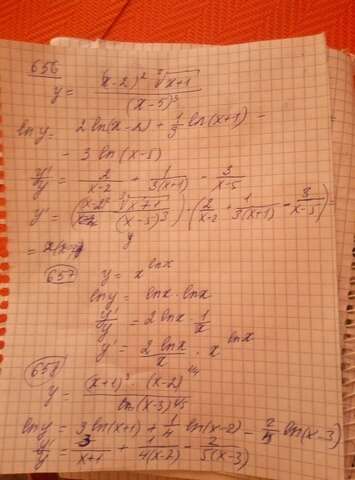 656
y = (x-2)² ∛(x+1) / (x-5)³
ln y = 2 ln(x-2) + 1/3 ln(x+1) -
- 3 ln(x-5)
y'/y = 2/(x-2) + 1/(3(x+1)) - 3/(x-5)
y' = ((x-2)² ∛(x+1) / (x-5)³) (2/(x-2) + 1/(3(x+1)) - 3/(x-5)) =
=
657 y = x^(ln x)
ln y = ln x · ln x
y'/y = 2 ln x · 1/x
y' = 2 ln x / x · x^(ln x)
658
y = (x+1)³ · (x-2)^(1/4) / (x-3)^(2/5)
ln y = 3 ln(x+1) + 1/4 ln(x-2) - 2/5 ln(x-3)
y'/y = 3/(x+1) + 1/(4(x-2)) - 2/(5(x-3))